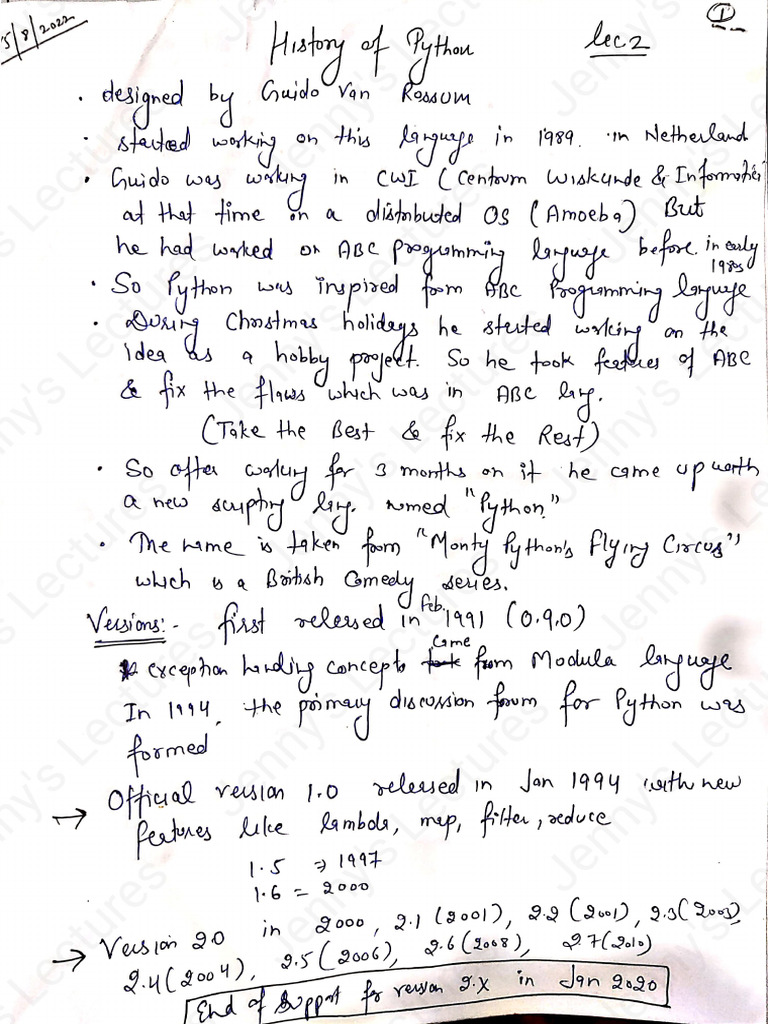 5/8/2022
①
History of Python
Lec 2
• designed by Guido Van Rossum
• started working on this language in 1989. in Netherland
• Guido was working in CWI (Centrum Wiskunde & Informatica
at that time on a distributed OS (Amoeba) But
he had worked on ABC programming language before. in early
1980s
• So Python was inspired from ABC Programming language
• During Christmas holidays he started working on the
idea as a hobby project. So he took features of ABC
& fix the flaws which was in ABC lang.
(Take the Best & fix the Rest)
• So after working for 3 months on it he came up with
a new scripting lang. named "Python."
• The name is taken from "Monty Python's Flying Circus"
which is a British Comedy series.
Versions:- first released in Feb. 1991 (0.9.0)
exception handling concepts came from Modula language
In 1994, the primary discussion forum for Python was
formed
→ Official version 1.0 released in Jan 1994 with new
features like lambda, map, filter, reduce
1.5 ⇒ 1997
1.6 = 2000
→ Version 2.0 in 2000, 2.1 (2001), 2.2 (2001), 2.3 (2003)
2.4 (2004), 2.5 (2006), 2.6 (2008), 2.7 (2010)
End of support for version 2.X in Jan 2020
Jenny's Lectures